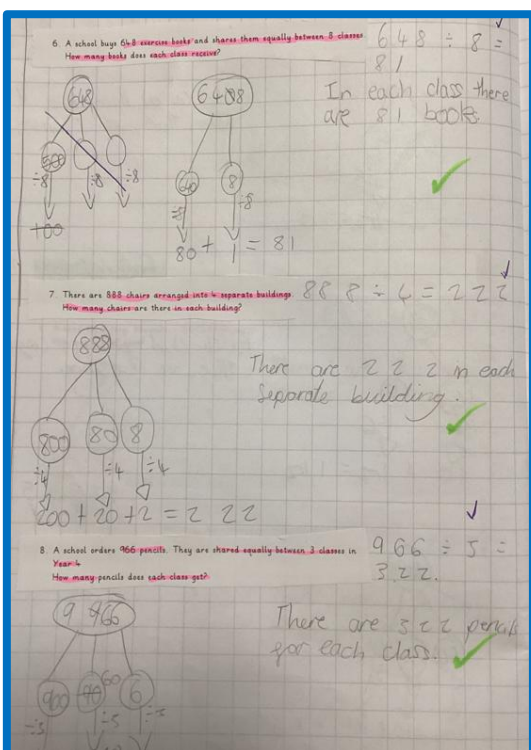 6. A school buys 648 exercise books and shares them equally between 8 classes.
How many books does each class receive?
648 ÷ 8 =
81
In each class there
are 81 books.
648
÷8 ÷8 ÷8
648
8
÷8 ÷8
80 + 1 = 81
7. There are 888 chairs arranged into 4 separate buildings.
How many chairs are there in each building?
888 ÷ 4 = 222
There are 222 in each
separate building.
888
800 80 8
÷4 ÷4 ÷4
200 + 20 + 2 = 222
8. A school orders 966 pencils. They are shared equally between 3 classes in
Year 4.
How many pencils does each class get?
966 ÷ 3 =
322.
There are 322 pencils
for each class.
966
900 60 6
÷3 ÷3 ÷3